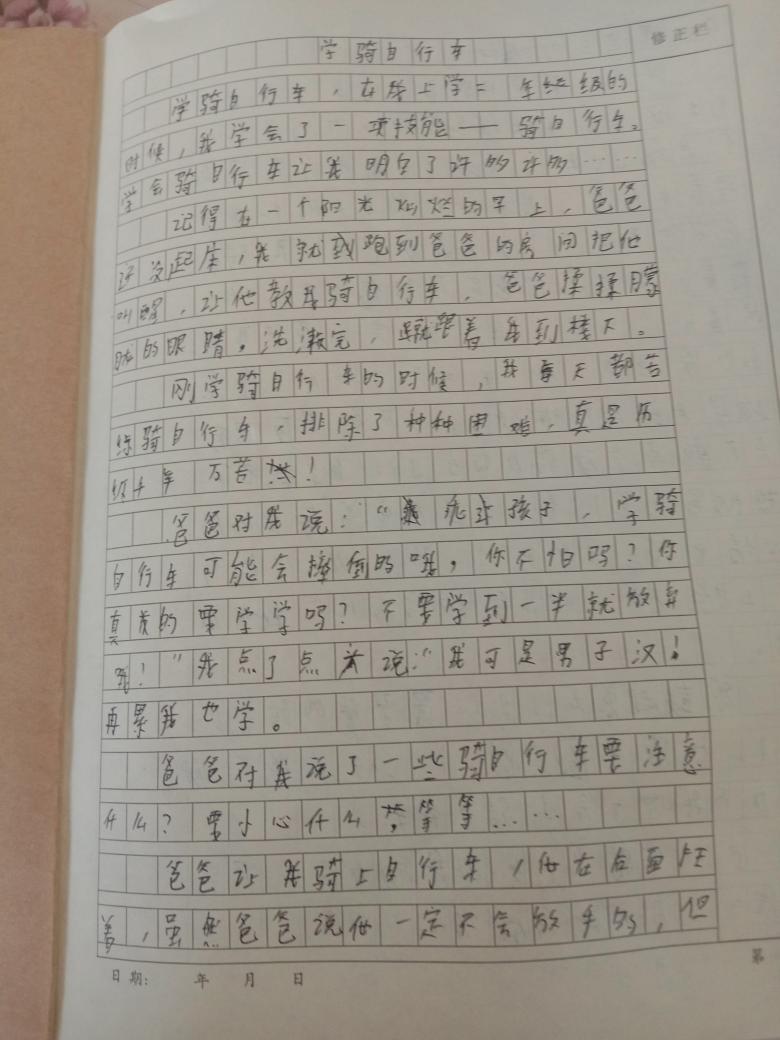 学骑自行车
修正栏
学骑自行车，在我上学二年级的
时候，我学会了一项技能——骑自行车。
学会骑自行车让我明白了许的许的……
记得在一个阳光灿烂的早上，爸爸
还没起床，我就跑到爸爸的房间把他
叫醒，让他教我骑自行车，爸爸揉揉朦
胧的眼睛。洗漱完，就跟着我到楼下。
刚学骑自行车的时候，我每天都苦
练骑自行车，排除了种种困难，真是历
经千辛万苦！
爸爸对我说：“孩子，学骑
自行车可能会摔倒的哦，你不怕吗？你
真的要学学吗？不要学到一半就放弃
！”我点了点头说：“我可是男子汉！
再累我也学。
爸爸对我说了一些骑自行车要注意
什么？要小心什么等等……
爸爸让我骑上自行车，他在后面
着，虽然爸爸说他一定不会放手的，但
日期： 年 月 日
第